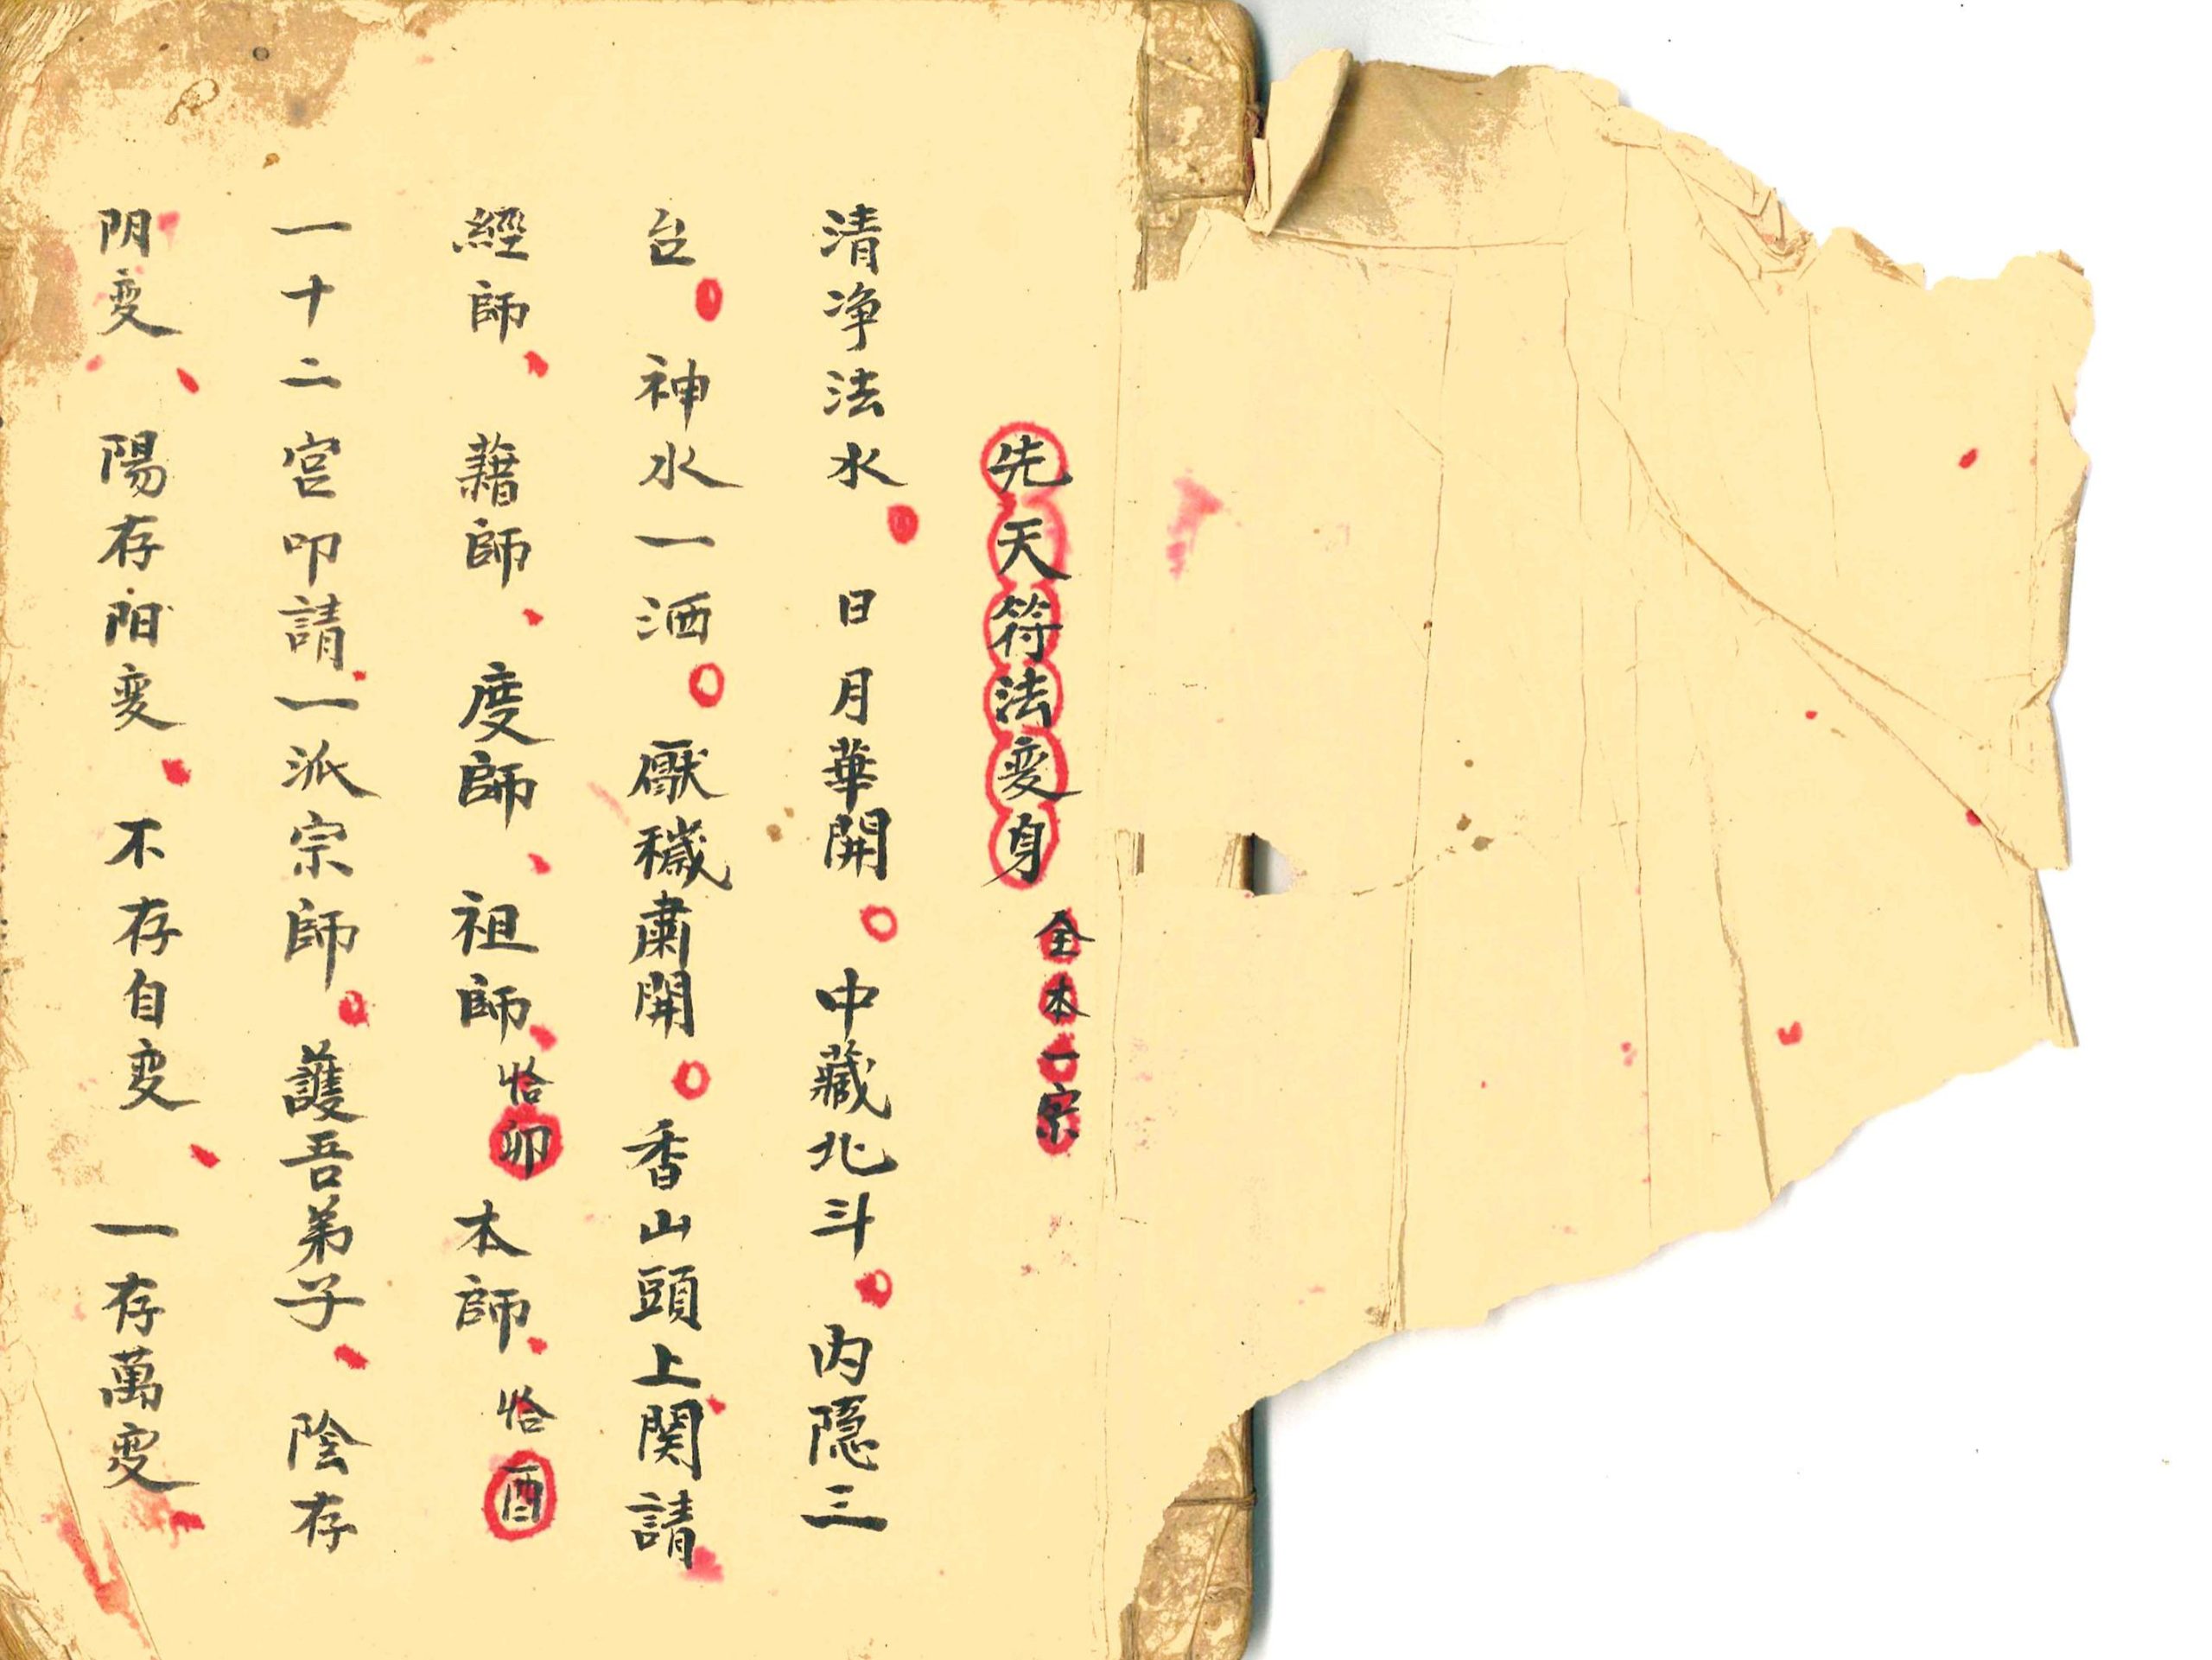 先天符法变身 全本一宗
清净法水 日月華開 中藏北斗 内隐三
台 神水一洒 厭穢肅開 香山頭上関請
經師 藉師 度師 祖師 恰卯 本師 恰酉
一十二宫叩請一派宗師 護吾弟子 陰存
阴变 陽存阳变 不存自变 一存萬变